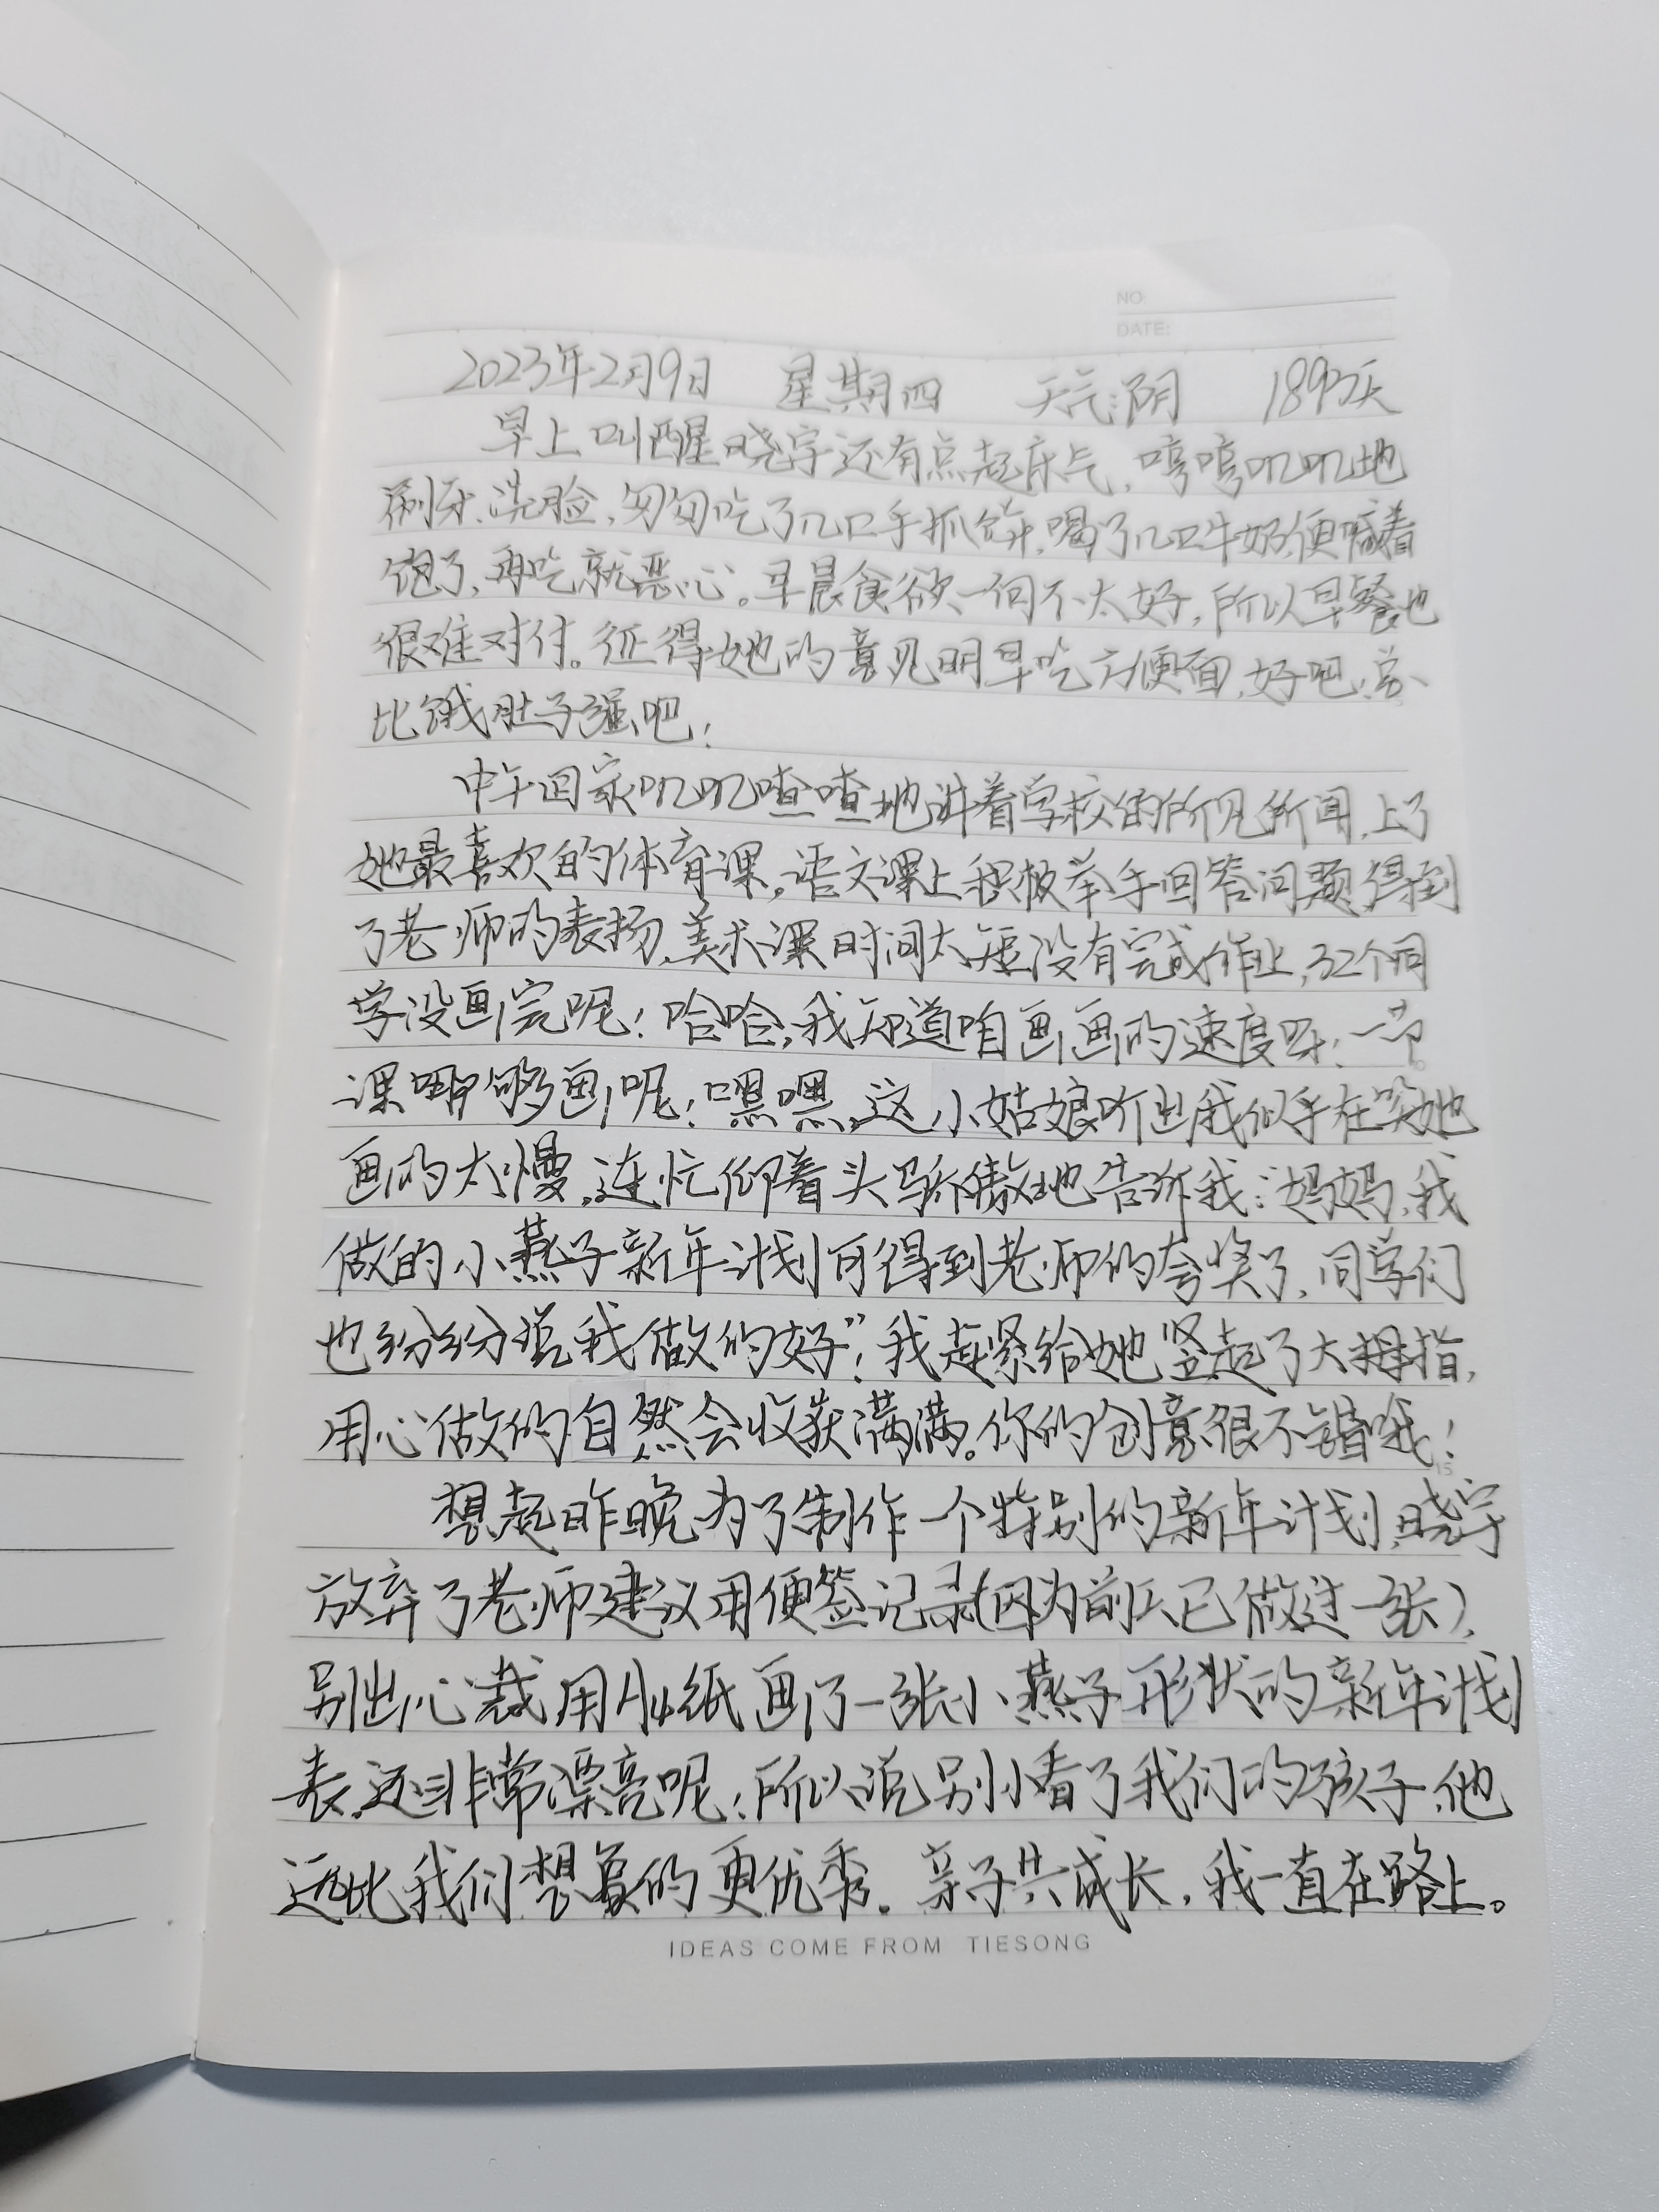 NO:
DATE:
2023年2月9日 星期四 天气:阴 1893天
早上叫醒晓宇还有点起床气，哼哼叽叽地
刷牙、洗脸，匆匆吃了几口手抓饼，喝了几口牛奶便喊着
饱了，再吃就恶心。早晨食欲一向不太好，所以早餐也
很难对付。征得她的意见明早吃方便面，好吧，总
比饿肚子强吧！
中午回家叽叽喳喳地讲着学校的所见所闻，上了
她最喜欢的体育课，语文课上积极举手回答问题，得到
了老师的表扬，美术课时间太短没有完成作业，32个同
学没画完呢！哈哈，我知道咱画画的速度呀！一节
课哪够画呢！嘿嘿，这小姑娘听出我似乎在笑她
画的太慢，连忙仰着头骄傲地告诉我：“妈妈，我
做的小燕子新年计划可得到老师的夸奖了，同学们
也纷纷说我做的好”！我赶紧给她竖起了大拇指，
用心做的自然会收获满满。你的创意很不错哦！
15
想起昨晚为了制作一个特别的新年计划，晓宇
放弃了老师建议用便签记录(因为前天已做过一张)，
别出心裁用A4纸画了一张小燕子形状的新年计划
表，还非常漂亮呢！所以说别小看了我们的孩子，他
远比我们想象的更优秀。亲子共成长，我一直在路上。
IDEAS COME FROM TIESONG